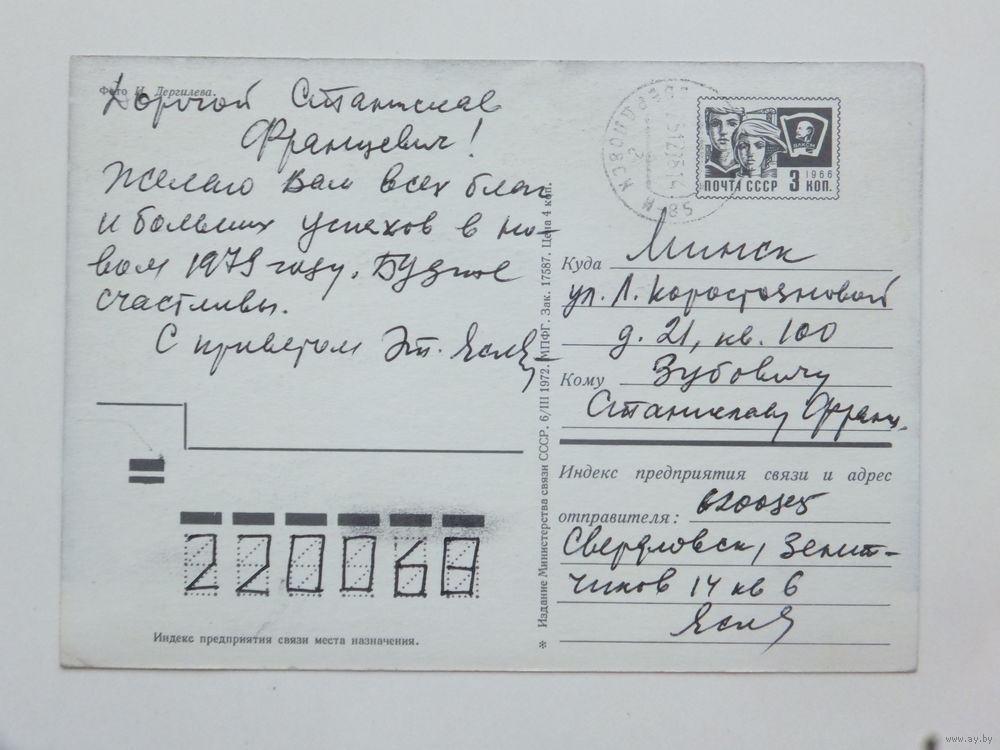 Фото И. Дергилева.
Дорогой Станислав
Францевич!
Желаю Вам всех благ
и больших успехов в но-
вом 1979 году. Будьте
счастливы.
С приветом Эт.
220068
Индекс предприятия связи места назначения.
✻ Издание Министерства связи СССР. 6/III 1972. МПФГ. Зак. 17587. Цена 4 коп.
ПОЧТА СССР 3 КОП.
1966
ВЛКСМ
Куда Минск
ул. Л. Коростояновой
д. 21, кв. 100
Кому Зубовичу
Станиславу Франц.
Индекс предприятия связи и адрес
отправителя:
Свердловск, Зенит-
чиков 14 кв 6
www.ay.by